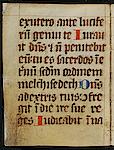 ex utero ante lucife
rū genui te Iurau
it dñs & n̄ penitebit
eū tu es sacerdos i et
ernū scdm ordinem
melchisedech Dn̄s
a dextris tuis ofre
git i die ire sue re
ges Iudicabit i na